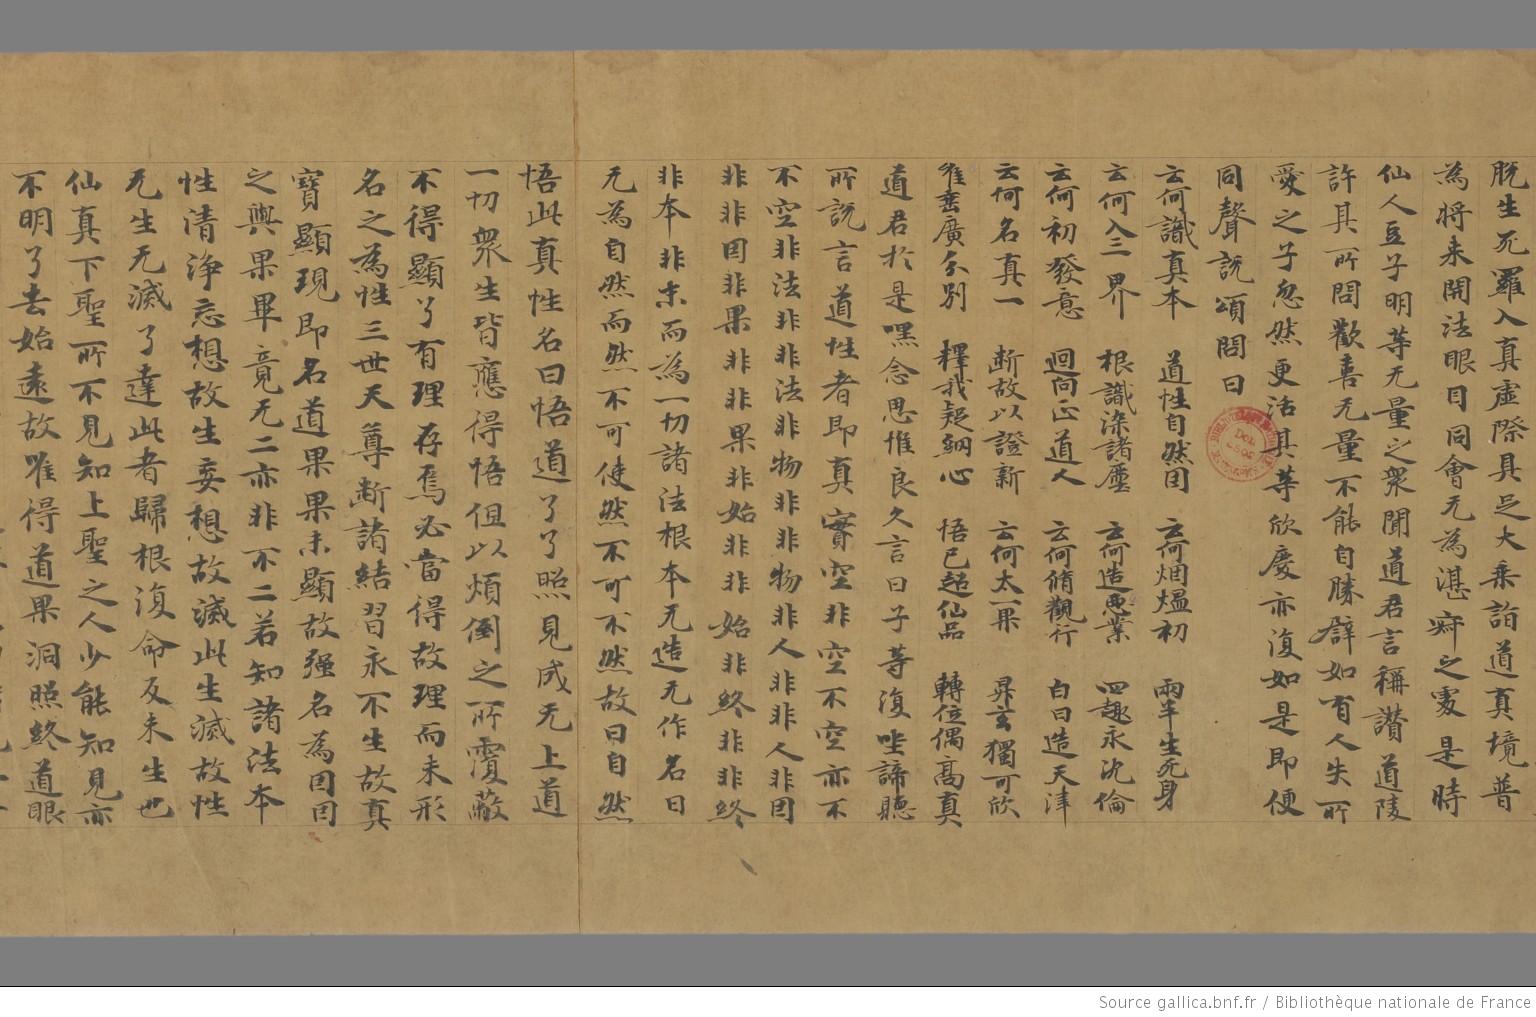 脱生死羅入真虛際具足大乗詣道真境普
為將来開法眼目同會无為湛㝷之處是時
仙人豆子明等无量之衆聞道君言稱讃道陵
許其所問歡喜无量不能自勝群如有人失所
愛之子忽然更活其等欣慶亦復如是即便
同聲說頌問曰
云何識真本 道性自然因 云何烟熅初 兩半生死身
云何入三界 根識染諸塵 云何造惡業 四趣永沉倫
云何初發意 迴向正道人 云何脩觀行 白日造天津
云何名真一 断故以證新 云何太一果 昇玄獨可欣
唯垂廣分別 釋我疑網心 悟已超仙品 轉位偶髙真
道君於是嘿念思惟良久言曰子等復坐諦聽
所說言道性者即真實空非空不空亦不
不空非法非非法非物非非物非人非非人非因
非非因非果非非果非始非非始非終非非終
非本非末而為一切諸法根本无造无作名曰
无為自然而然不可使然不可不然故曰自然
悟此真性名曰悟道了了照見成无上道
一切衆生皆應得悟但以煩倒之所覆蔽
不得顯了有理存焉必當得故理而未形
名之為性三世天尊断諸結習永不生故真
寶顯現即名道果果未顯故强名為因因
之與果畢竟无二亦非不二若知諸法本
性清浄忘想故生妄想故滅此生滅故性
无生无滅了達此者歸根復命反未生也
仙真下聖所不見知上聖之人少能知見亦
不明了去始遠故唯得道果洞照終道眼
Source gallica.bnf.fr / Bibliothèque nationale de France